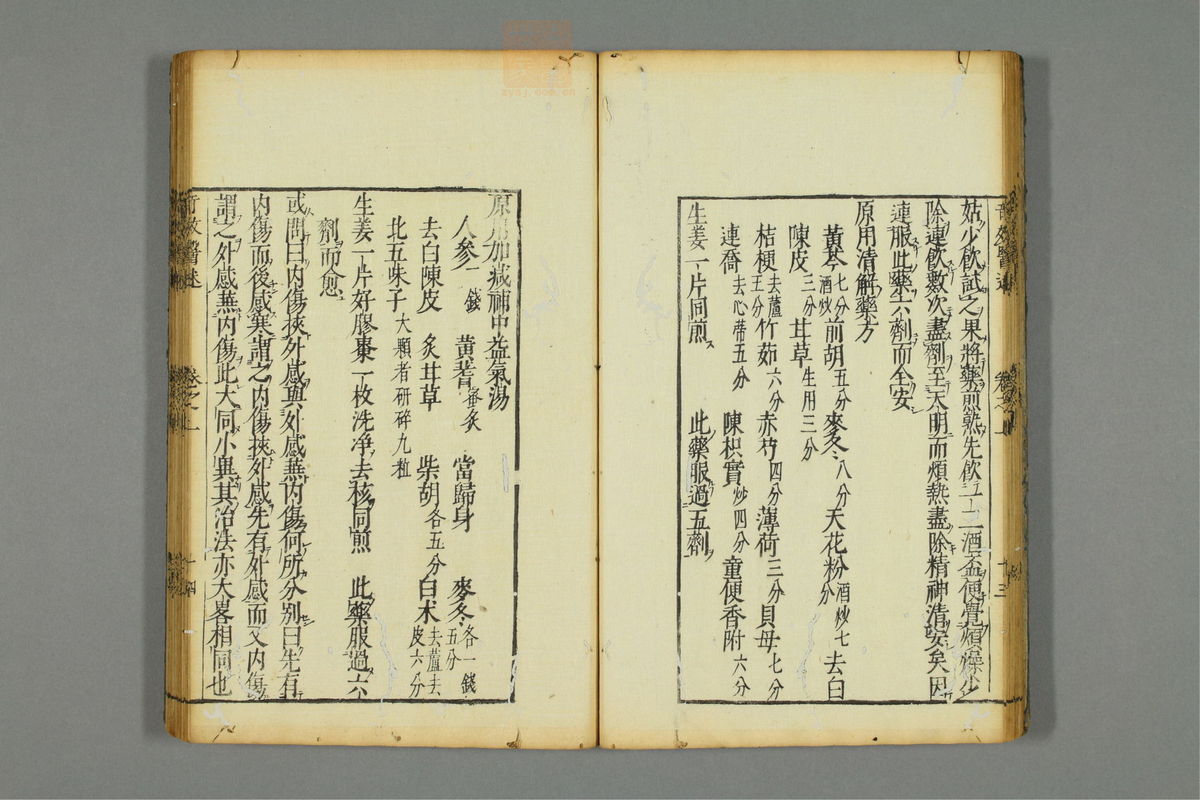 姑少飲試之果將藥煎熟先飲一二酒盃便覺煩燥少
除連飲數次盡劑至天明而煩熱盡除精神清安矣因
連服此藥六劑而全安
原用清解藥方
黃芩七分酒炒 前胡五分 麥冬八分 天花粉酒炒七分 去白
陳皮三分 甘草生用三分
桔梗去蘆五分 竹茹六分 赤芍四分 薄荷三分 貝母七分
連喬去心蒂五分 陳枳實炒四分 童便香附六分
生姜一片同煎 此藥服過五劑
卷之一
十三
原用加減補中益氣湯
人參一錢 黃蓍蜜炙 當歸身 麥冬各一錢五分
去白陳皮 炙甘草 柴胡各五分 白朮去蘆去皮六分
北五味子大顆者研碎九粒
生姜一片好膠棗一枚洗净去核同煎 此藥服過六
劑而愈
或問曰內傷挾外感與外感蕪內傷何所分别曰先有
內傷而後感寒謂之內傷挾外感先有外感而又內傷
謂之外感蕪內傷此大同小異其治法亦大畧相同也
奇效醫述
卷之一
十四